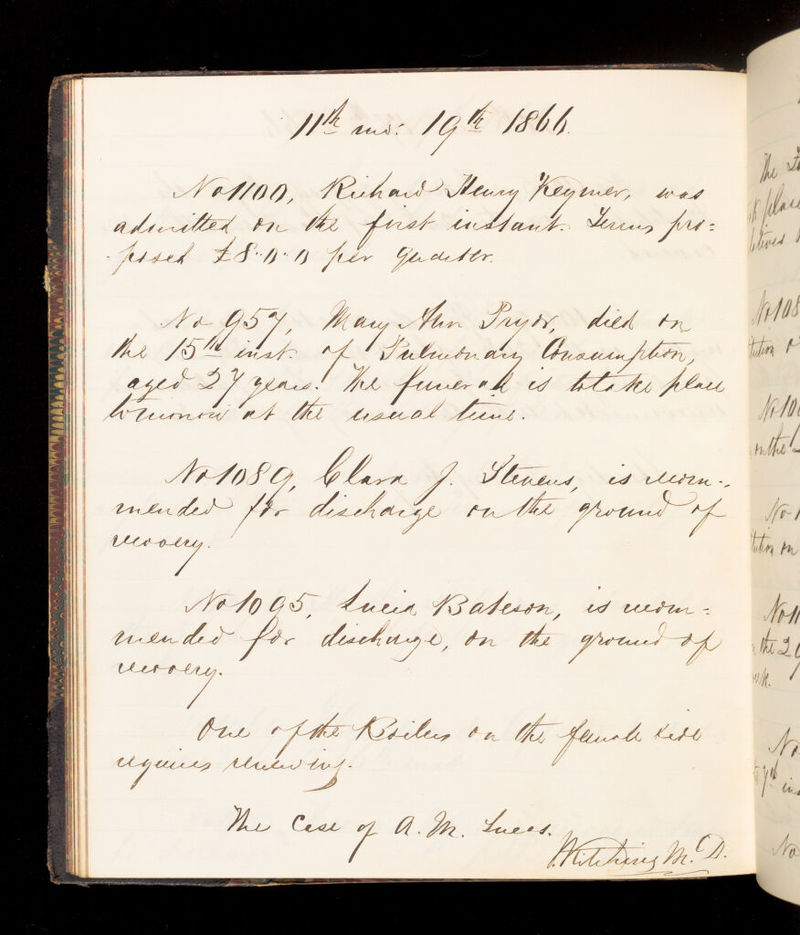 11th mo: 19th 1866.
No 1100, Richard Henry Keymer, was
admitted on the first instant. Terms pro=
posed £8.0.0 per quarter.
No 957, Mary Ann Pryor, died on
the 15th inst. of Pulmonary Consumption,
aged 27 years. The funeral is to take place
tomorrow at the usual time.
No 1089, Clara J. Stevens, is recom=
mended for discharge on the ground of
recovery.
No 1095, Lucia Bateson, is recom=
mended for discharge, on the ground of
recovery.
One of the Boilers on the female side
requires renewing.
The Case of A. M. Lucas.
Kitching M.D.
The
place
No 108
No 10
on the
No 1
on
No 11
the 29
No
7th ins
No